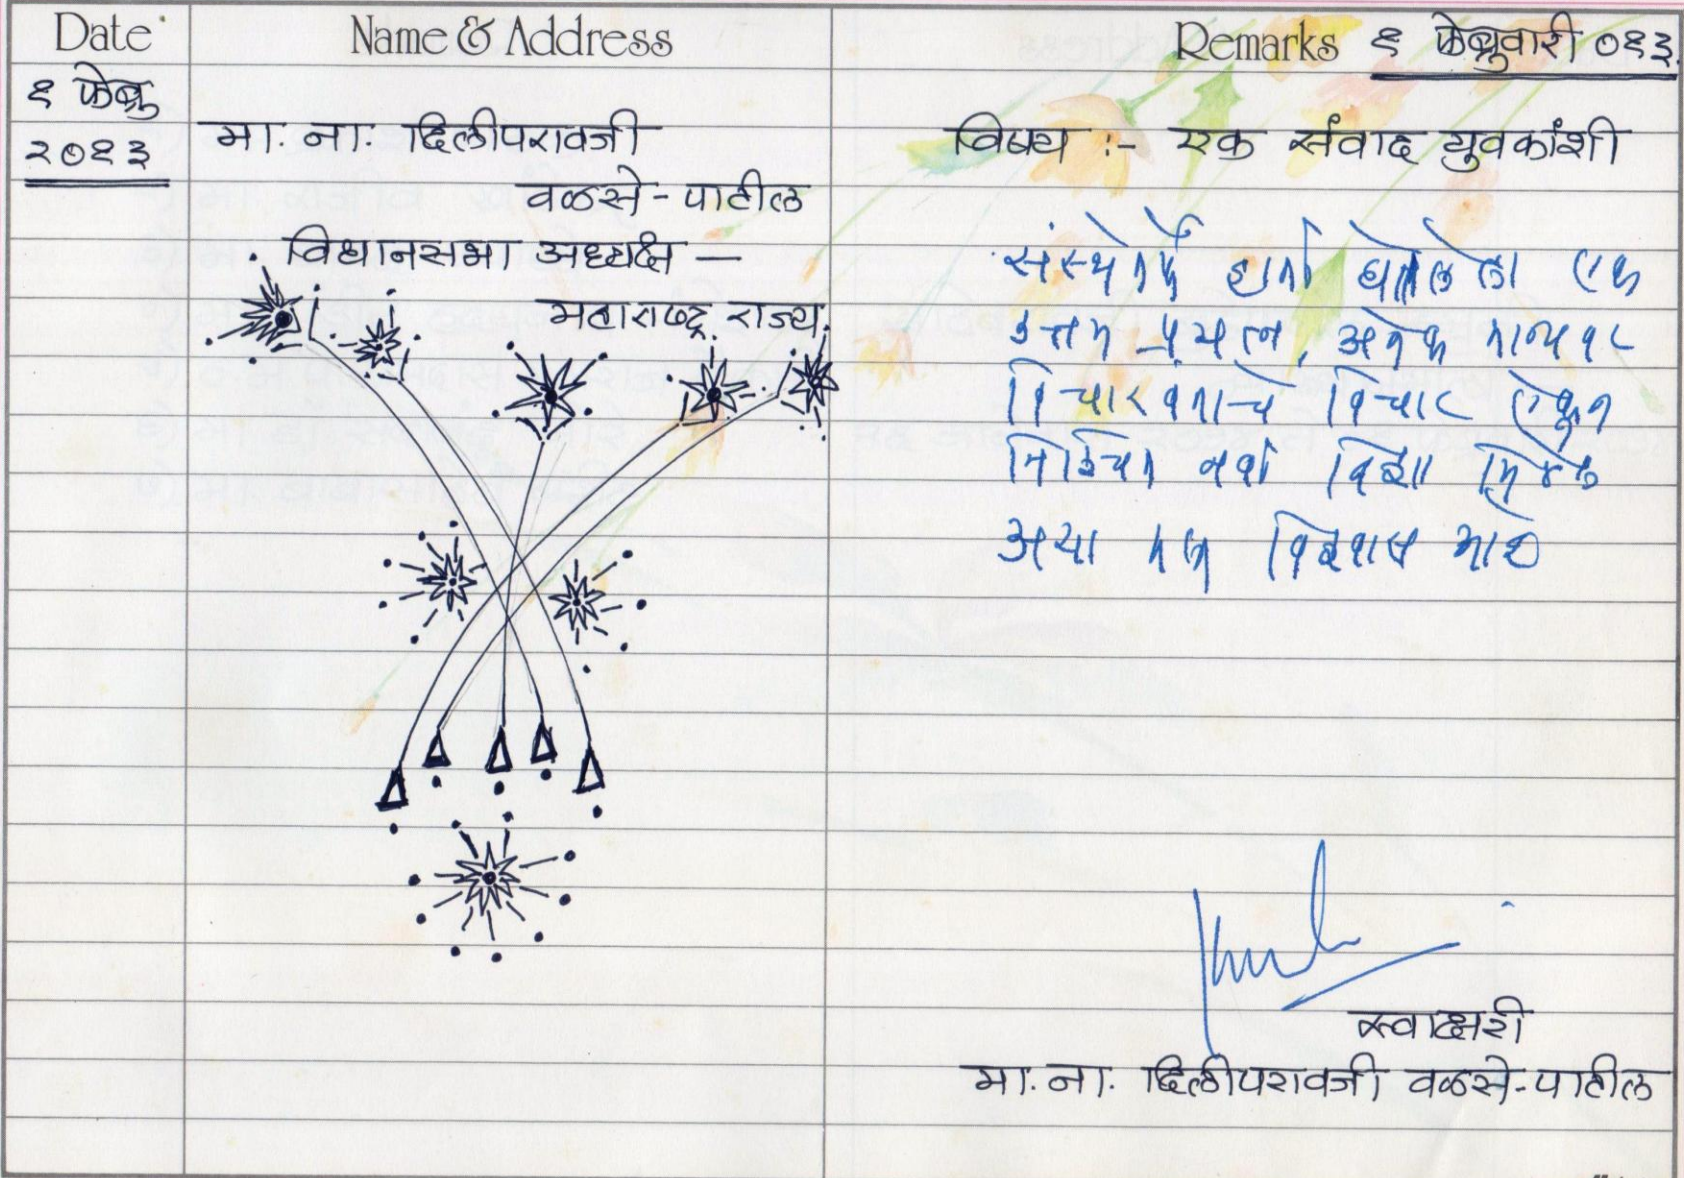 Date
Name & Address
Remarks १ फेब्रुवारी ०१३.
१ फेब्रु
२०१३
मा. ना. दिलीपरावजी
वळसे - पाटील
विधानसभा अध्यक्ष —
महाराष्ट्र राज्य.
विषय :- एक संवाद युवकांशी
संस्थेने हाती घेतलेला एक
उत्तम प्रयत्न, अनेक मान्यवर
विचारवंताचे विचार ऐकून
निश्चित नवी दिशा मिळेल
असा मला विश्वास आहे
स्वाक्षरी
मा. ना. दिलीपरावजी वळसे-पाटील